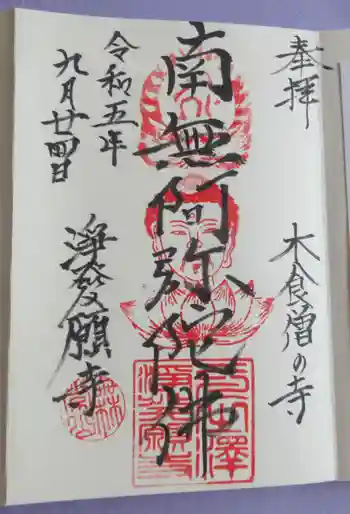 奉拝
木食僧の寺
南無阿弥陀佛
令和五年
九月廿四日
淨發願寺